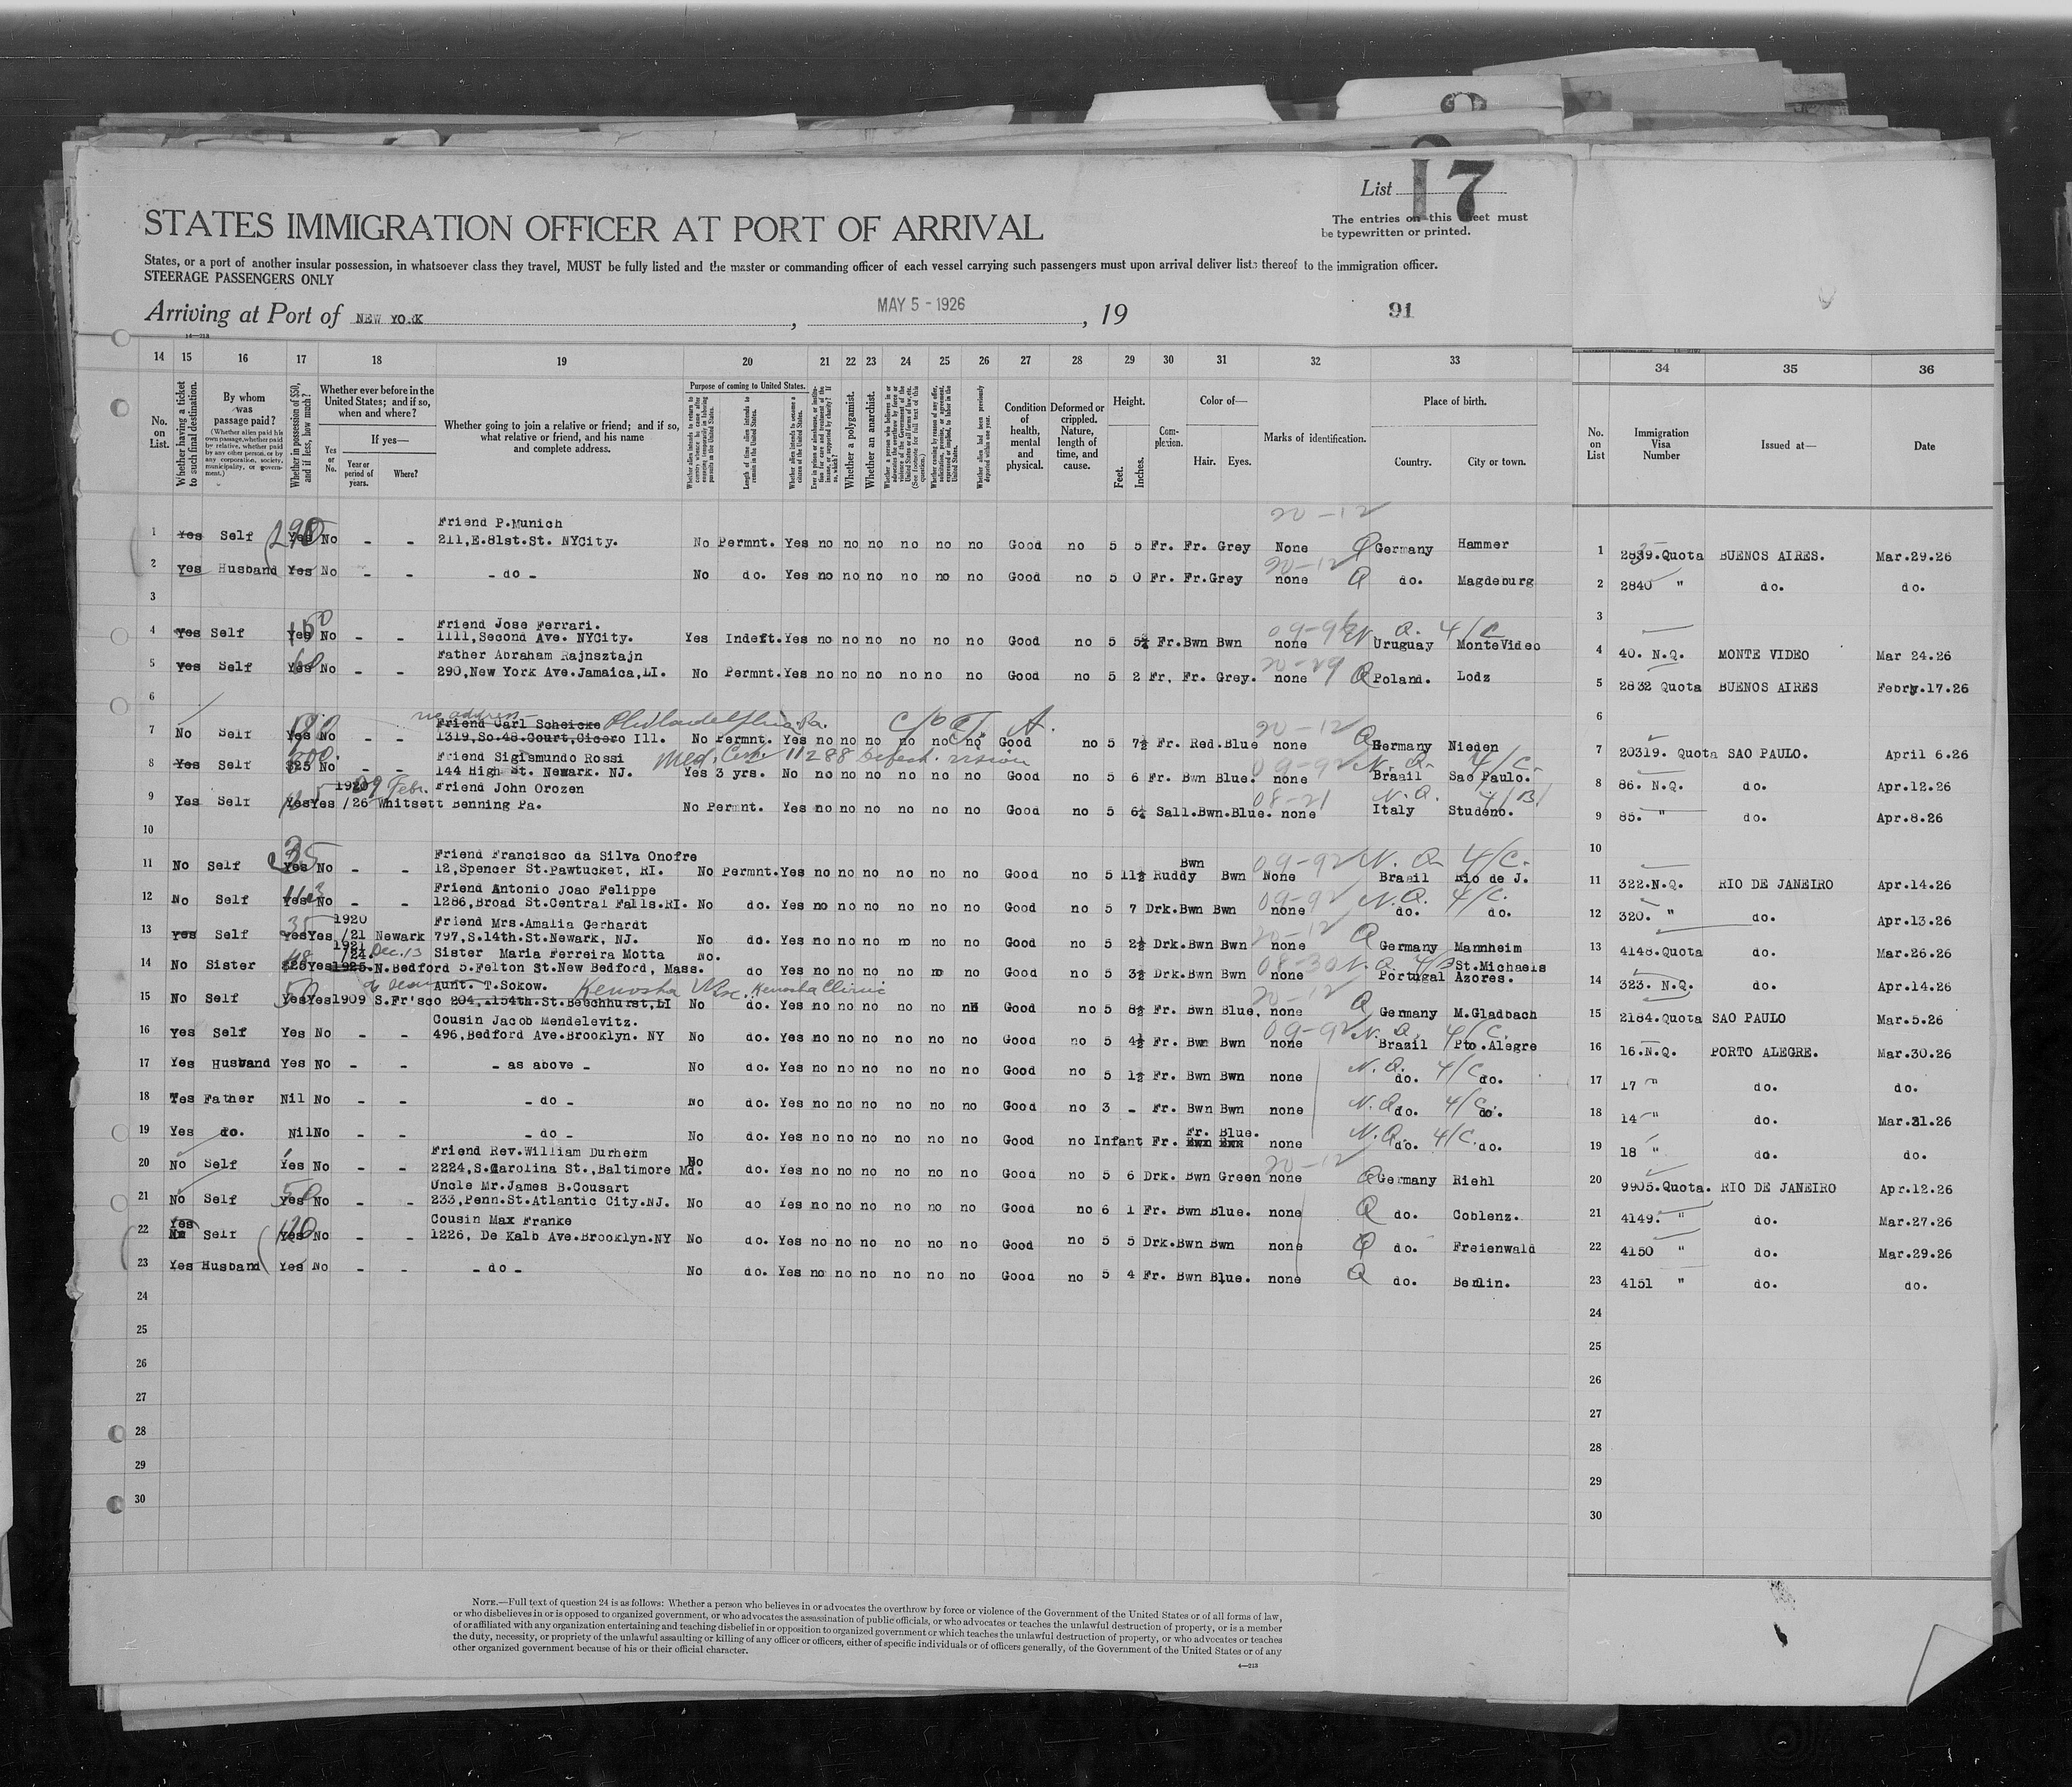 List 17
The entries on this sheet must
be typewritten or printed.
STATES IMMIGRATION OFFICER AT PORT OF ARRIVAL
States, or a port of another insular possession, in whatsoever class they travel, MUST be fully listed and the master or commanding officer of each vessel carrying such passengers must upon arrival deliver lists thereof to the immigration officer.
STEERAGE PASSENGERS ONLY
Arriving at Port of NEW YORK , MAY 5 - 1926 , 19 91
14 15 16 17 18 19 20 21 22 23 24 25 26 27 28 29 30 31 32 33 34 35 36
No. on List.
Whether having a ticket to such final destination.
By whom was passage paid?
(Whether alien paid his own passage, whether paid by relative, whether paid by any other person, or by any corporation, society, municipality, or government.)
Whether in possession of $50, and if less, how much?
Whether ever before in the United States; and if so, when and where?
Yes or No.
If yes—
Year or period of years.
Where?
Whether going to join a relative or friend; and if so, what relative or friend, and his name and complete address.
Purpose of coming to United States.
Length of time alien intends to remain in the United States.
Whether alien intends to become a citizen of the United States.
Whether a polygamist.
Whether an anarchist.
Condition of health, mental and physical.
Deformed or crippled. Nature, length of time, and cause.
Height.
Feet. Inches.
Complexion.
Color of—
Hair. Eyes.
Marks of identification.
Place of birth.
Country. City or town.
No. on List
Immigration Visa Number
Issued at—
Date
1 Yes Self 290 Yes No - - Friend P.Munich
211,E.81st.St. NYCity. No Permnt. Yes no no no no no no Good no 5 5 Fr. Fr. Grey None Q Germany Hammer 1 2839.Quota BUENOS AIRES. Mar.29.26
2 Yes Husband Yes No - - - do - No do. Yes no no no no no no Good no 5 0 Fr. Fr.Grey none Q do. Magdeburg 2 2840 " do. do.
3 3
4 Yes Self Yes No - - Friend Jose Ferrari.
1111,Second Ave. NYCity. Yes Indeft. Yes no no no no no no Good no 5 5½ Fr.Bwn Bwn none N. Q. 4/C Uruguay MonteVideo 4 40. N.Q. MONTE VIDEO Mar 24.26
5 Yes Self Yes No - - Father Abraham Rajnsztajn
290,New York Ave.Jamaica,LI. No Permnt. Yes no no no no no no Good no 5 2 Fr. Fr. Grey. none Q Poland. Lodz 5 2832 Quota BUENOS AIRES Febry.17.26
6 6
no address Philadelphia Pa.
7 No Self Yes No - - Friend Carl Scheicke
1319,So.48.Court,Cicero Ill. No Permnt. Yes no no no no no no Good no 5 7½ Fr. Red.Blue none Q Germany Nieden 7 20319. Quota SAO PAULO. April 6.26
Med. Cert. 11288 Defect. vision
8 Yes Self $25 No - - Friend Sigismundo Rossi
144 High St. Newark. NJ. Yes 3 yrs. No no no no no no no Good no 5 6 Fr. Bwn Blue. none N. Q. 4/C. Brasil Sao Paulo. 8 86. N.Q. do. Apr.12.26
9 Yes Self Yes Yes 1920 /26 Whitsett Friend John Orozen
Benning Pa. No Permnt. Yes no no no no no no Good no 5 6½ Sall.Bwn.Blue. none N. Q. 4/B Italy Studeno. 9 85. " do. Apr.8.26
10 10
11 No Self Yes No - - Friend Francisco da Silva Onofre
12,Spencer St.Pawtucket, RI. No Permnt.Yes no no no no no no Good no 5 11½ Ruddy Bwn Bwn None 09-92 N. Q. 4/C. Brasil Rio de J. 11 322.N.Q. RIO DE JANEIRO Apr.14.26
12 No Self Yes No - - Friend Antonio Joao Felippe
1286,Broad St.Central Falls.RI. No do. Yes no no no no no no Good no 5 7 Drk.Bwn Bwn none 09-92 N.Q. 4/C. do. do. 12 320. " do. Apr.13.26
13 yes Self 35 Yes Yes 1920 /21 Newark Friend Mrs.Amalia Gerhardt
797,S.14th.St.Newark, NJ. No do. Yes no no no no no no Good no 5 2½ Drk.Bwn Bwn none Q Germany Mannheim 13 4148.Quota do. Mar.26.26
14 No Sister $25 Yes 1921 /24. Dec.13 1925. N.Bedford Sister Maria Ferreira Motta
5.Felton St.New Bedford, Mass. No. do Yes no no no no no no Good no 5 3½ Drk.Bwn Bwn none 08-30 N. Q. 4/B Portugal St.Michaels Azores. 14 323. N.Q. do. Apr.14.26
15 No Self 50 Yes Yes 1909 S.Fr'sco Aunt. T.Sokow. Kenosha Wisc. Kenosha Clinic
204,.154th.St.Beechhurst,LI No do. Yes no no no no no no Good no 5 8½ Fr. Bwn Blue. none 20-12 Q Germany M.Gladbach 15 2184.Quota SAO PAULO Mar.5.26
16 yes Self Yes No - - Cousin Jacob Mendelevitz.
496,Bedford Ave.Brooklyn. NY No do. Yes no no no no no no Good no 5 4½ Fr. Bwn Bwn none 09-92 N. Q. 4/C. Brazil Pto.Alegre 16 16.N.Q. PORTO ALEGRE. Mar.30.26
17 Yes Husband Yes No - - - as above - No do. Yes no no no no no no Good no 5 1½ Fr. Bwn Bwn none N. Q. 4/C do. do. 17 17 " do. do.
18 Yes Father Nil No - - - do - No do. Yes no no no no no no Good no 3 - Fr. Bwn Bwn none N. Q. 4/C. do. do. 18 14 " do. Mar.31.26
19 Yes do. Nil No - - - do - No do. Yes no no no no no no Good no Infant Fr. Fr. Blue. none N. Q. 4/C. do. do. 19 18 " do. do.
20 No Self Yes No - - Friend Rev.William Durherm
2224,S.Carolina St.,Baltimore Md. No do. Yes no no no no no no Good no 5 6 Drk. Bwn Green none 20-12 Q Germany Riehl 20 9905.Quota. RIO DE JANEIRO Apr.12.26
21 No Self 50 Yes No - - Uncle Mr.James B.Cousart
233,Penn.St.Atlantic City.NJ. No do Yes no no no no no no Good no 6 1 Fr. Bwn Blue. none Q do. Coblenz. 21 4149. " do. Mar.27.26
22 Yes Self 120 Yes No - - Cousin Max Franke
1226, De Kalb Ave.Brooklyn.NY No do. Yes no no no no no no Good no 5 5 Drk.Bwn Bwn none Q do. Freienwald 22 4150 " do. Mar.29.26
23 Yes Husband Yes No - - - do - No do. Yes no no no no no no Good no 5 4 Fr. Bwn Blue. none Q do. Berlin. 23 4151 " do. do.
24 24
25 25
26 26
27 27
28 28
29 29
30 30
NOTE.—Full text of question 24 is as follows: Whether a person who believes in or advocates the overthrow by force or violence of the Government of the United States or of all forms of law,
or who disbelieves in or is opposed to organized government, or who advocates the assassination of public officials, or who advocates or teaches the unlawful destruction of property, or is a member
of or affiliated with any organization entertaining and teaching disbelief in or opposition to organized government or which teaches the unlawful destruction of property, or who advocates or teaches
the duty, necessity, or propriety of the unlawful assaulting or killing of any officer or officers, either of specific individuals or of officers generally, of the Government of the United States or of any
other organized government because of his or their official character.